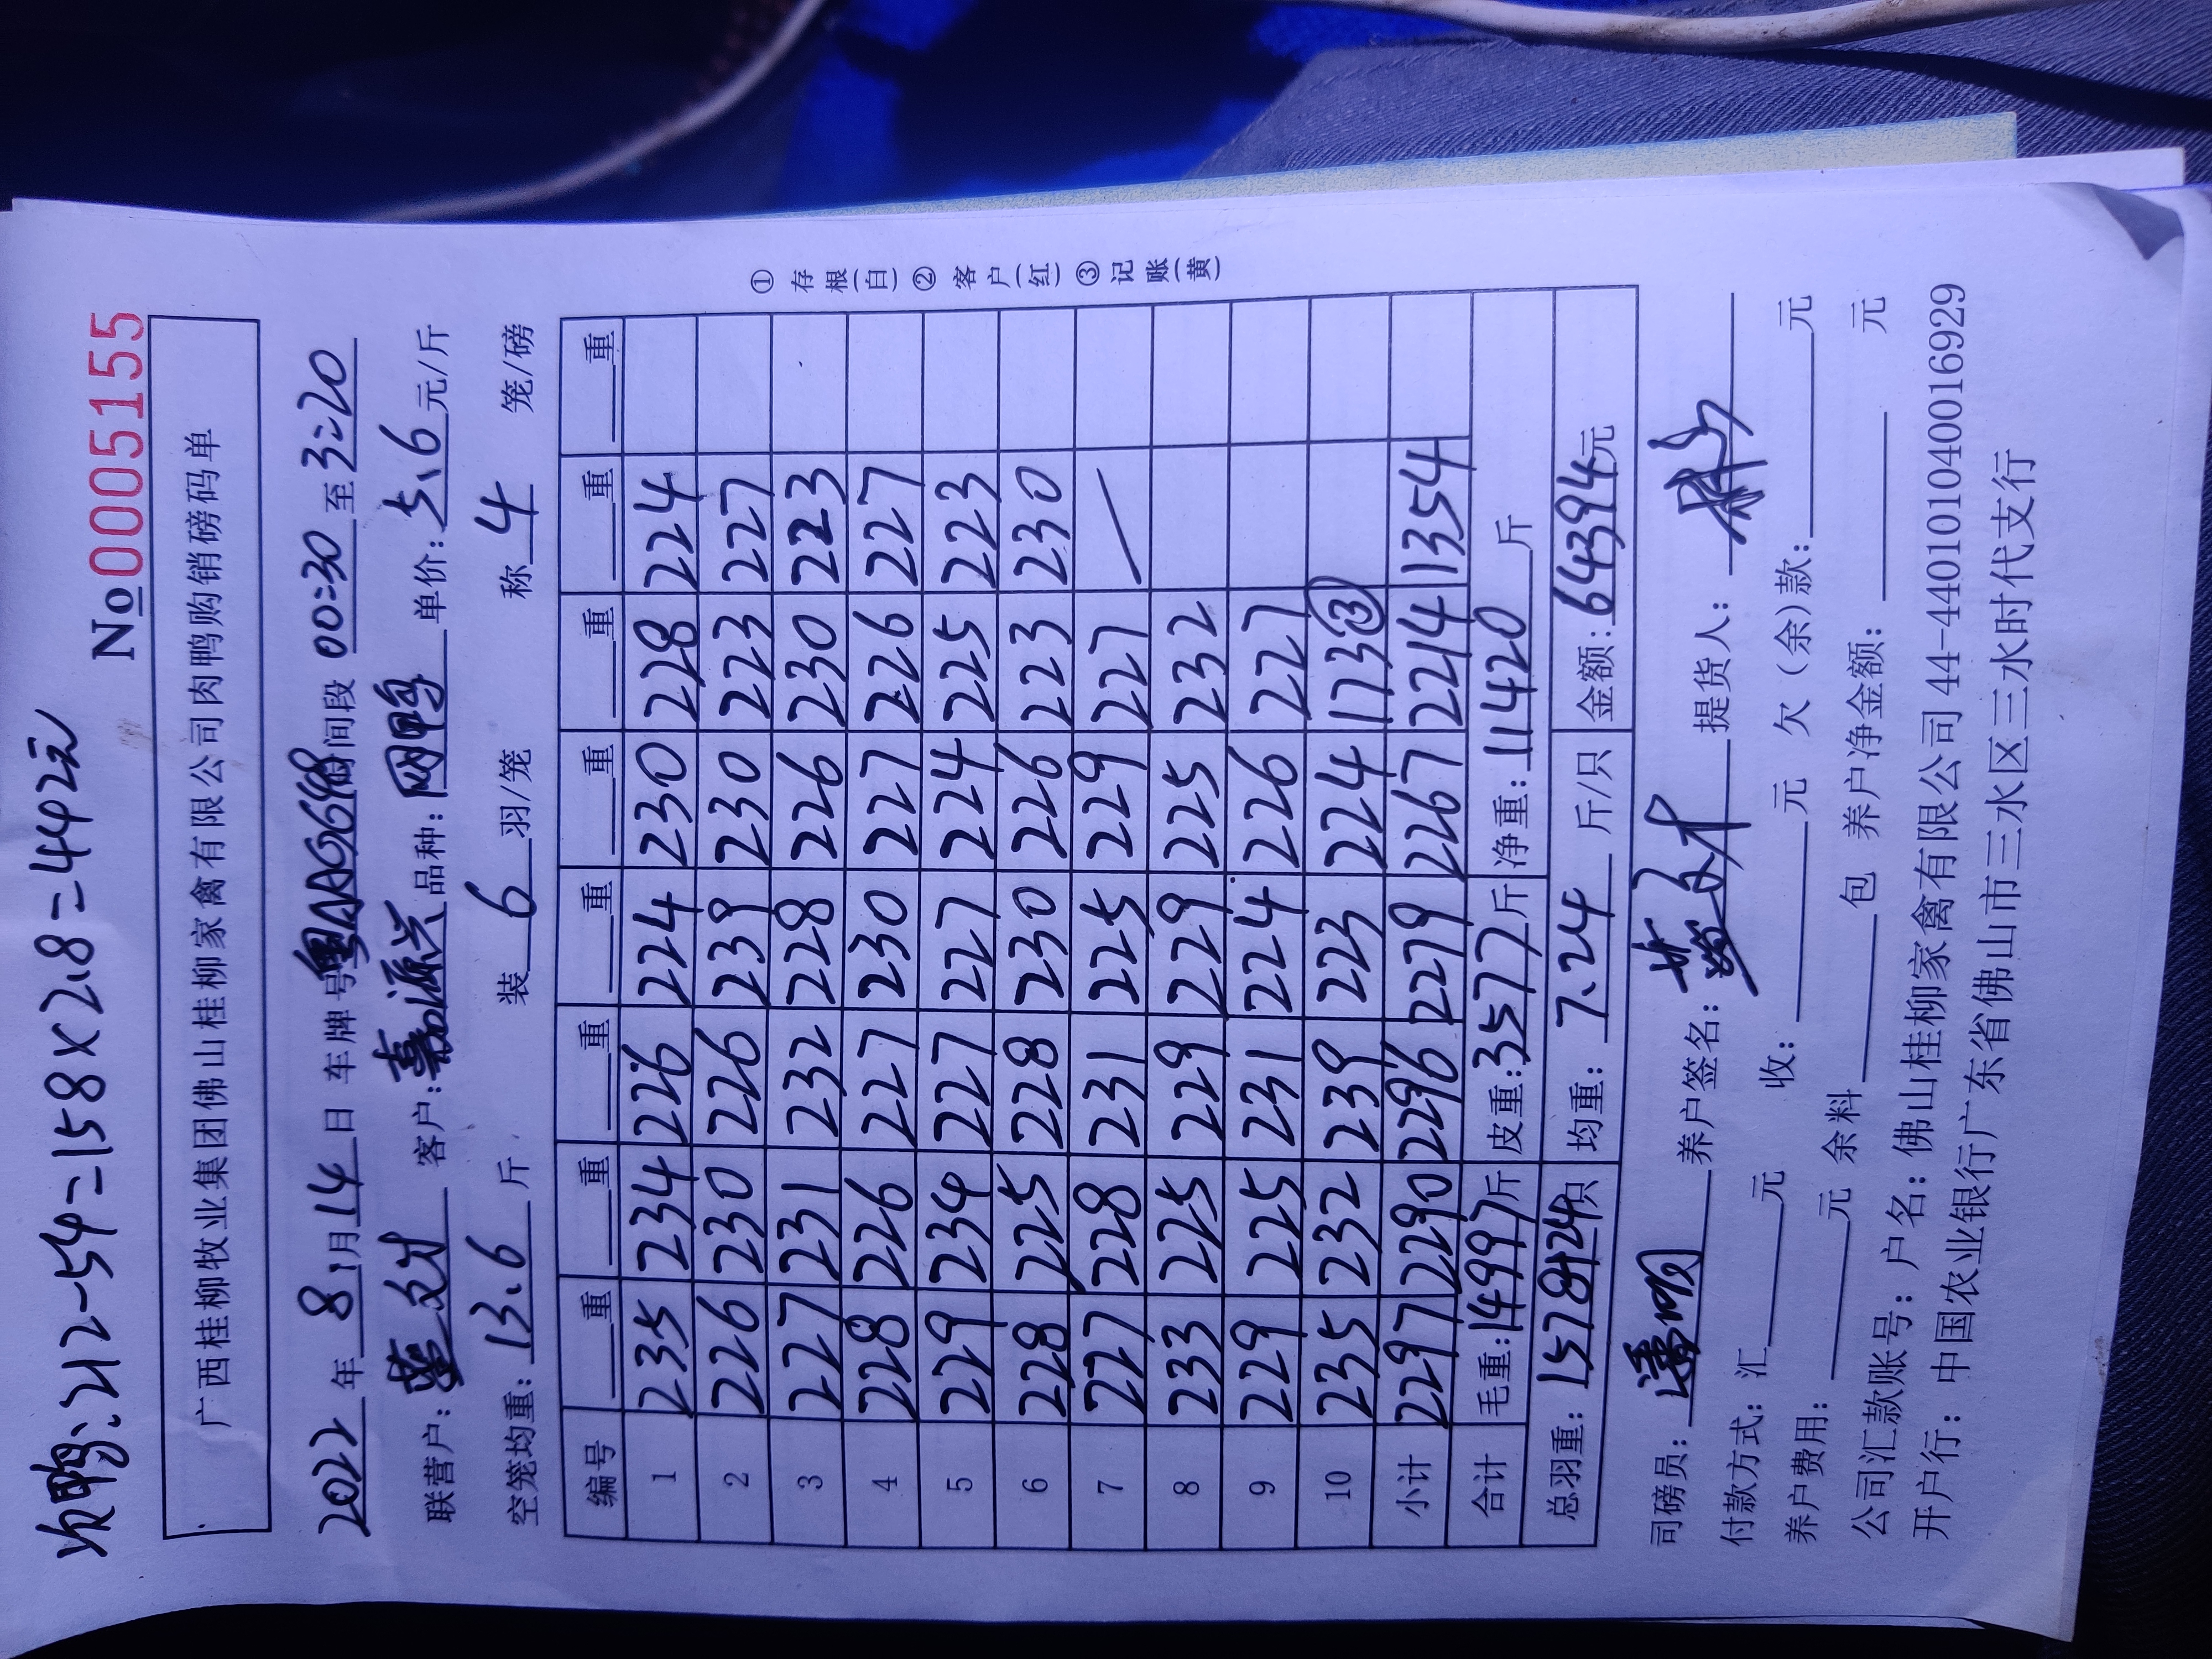 次鸭:212-54=158×2.8=442元
No 0005155
广西桂柳牧业集团佛山桂柳家禽有限公司肉鸭购销磅码单
2022年8月14日 车牌号 间段00:30至3:20
联营户: 客户:嘉源兴 品种:网鸭 单价:5.6元/斤
空笼均重:13.6斤 装6羽/笼 称4笼/磅
编号 重 重 重 重 重 重 重 重
1 235 234 226 224 230 228 224
2 226 230 226 239 230 223 227
3 227 231 232 228 226 230 223
4 228 226 227 230 227 226 227
5 229 234 227 227 224 225 223
6 228 225 228 230 226 223 230
7 227 228 231 225 229 227
8 233 225 229 229 225 232
9 229 225 231 224 226 227
10 235 232 239 223 224 173③
小计 2297 2290 2296 2279 2267 2214 1354
合计 毛重:14997斤 皮重:3577斤 净重:11420斤
总羽重: 只 均重:7.24斤/只 金额:64394元
① 存根(白) ② 客户(红) ③ 记账(黄)
司磅员: 养户签名: 提货人:
付款方式:汇 元 收: 元 欠(余)款: 元
养户费用: 元 余料 包 养户净金额: 元
公司汇款账号:户名:佛山桂柳家禽有限公司44-440101040016929
开户行:中国农业银行广东省佛山市三水区三水时代支行